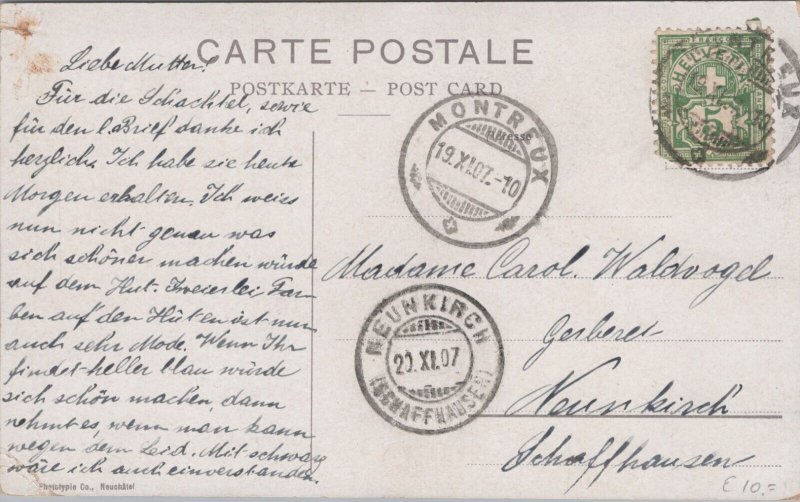 CARTE POSTALE
POSTKARTE — POST CARD
Liebe Mutter!
Für die Schachtel, sowie
für den l. Brief danke ich
herzlich. Ich habe sie heute
Morgen erhalten. Ich weiss
nun nicht genau was
sich schöner machen würde
auf dem Hut. Zweierlei Far-
ben auf den Hüten ist nun
auch sehr Mode. Wenn Ihr
findet heller blau würde
sich schön machen, dann
nehmt es, wenn man kann
wegen dem Leid. Mit schwarz
wäre ich auch einverstanden.
Phototypie Co., Neuchâtel
MONTREUX
19.XI.07.-10
HELVETIA
FRANCO
5
EUX
10
Madame Carol. Waldvogel
Gerberei
Neunkirch
Schaffhausen
NEUNKIRCH
20.XI.07
(SCHAFFHAUSEN)
€ 10,=